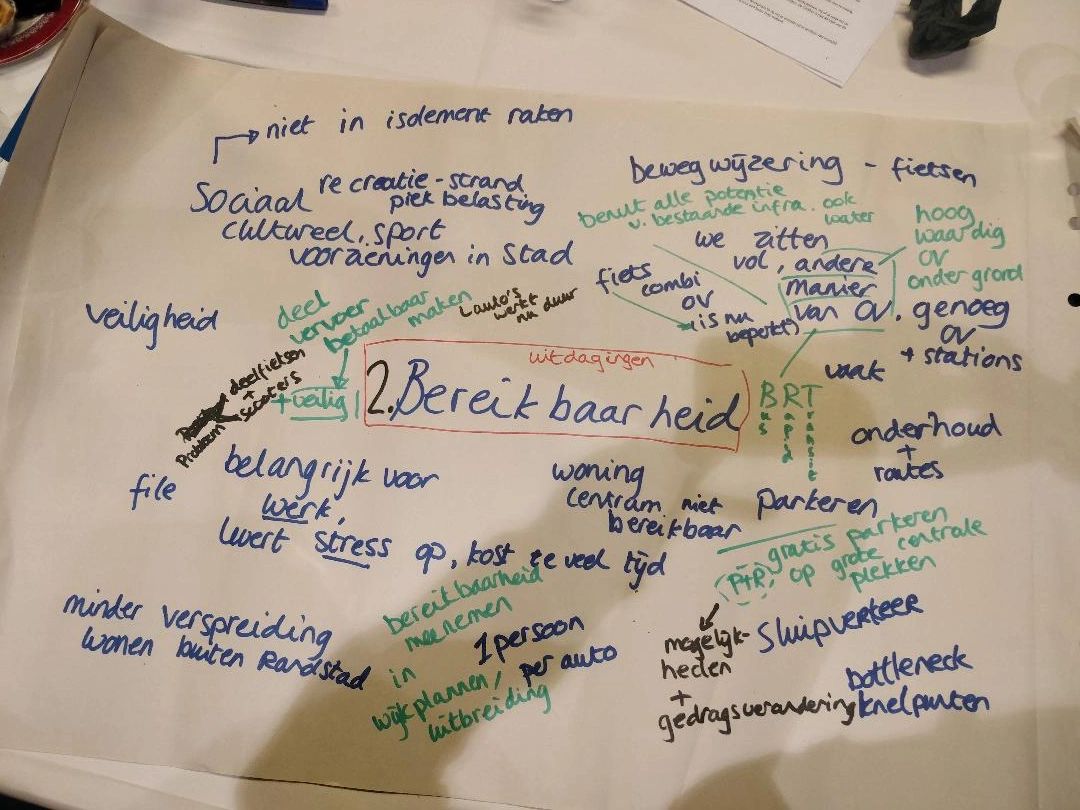 niet in isolement raken
Sociaal
recreatie-strand
piek belasting
cultureel, sport
voorzieningen in stad
bewegwijzering - fietsen
benut alle potentie
v. bestaande infra. ook
water
we zitten
vol, andere
manier
van OV.
hoog
waardig
OV
ondergrond
fiets
combi
OV
(is nu
beperkt)
genoeg
OV
+ stations
veiligheid
deel
vervoer
betaalbaar
maken
auto's
werkt
nu duur
+ veilig
deelfietsen
+
scooters
Probleem
uitdagingen
2. Bereikbaarheid
BRT
Bus
Rapid
Transit
vaak
onderhoud
+
routes
file
belangrijk voor
werk,
levert stress op, kost te veel tijd
woning
centrum niet
bereikbaar
parkeren
gratis parkeren
P+R, op grote centrale
plekken
minder verspreiding
wonen buiten Randstad
bereikbaarheid
meenemen
in
wijkplannen/
uitbreiding
1 persoon
per auto
mogelijk-
heden
+
gedragsverandering
Sluipverkeer
bottleneck
knelpunten